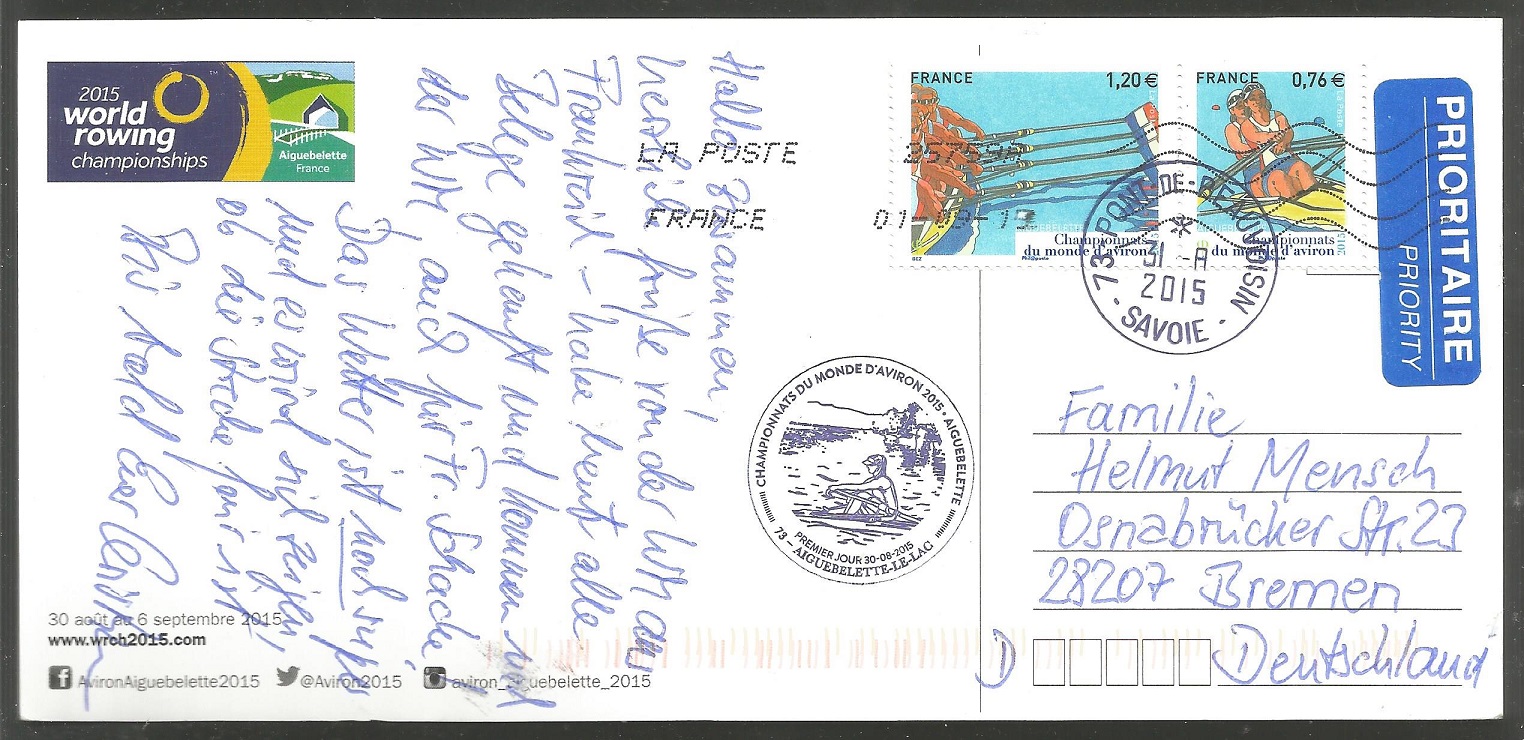 2015
world
rowing
championships
™
Aiguebelette
France
Hallo zusammen!
herzliche Grüße von der WM aus
Frankreich - habe heute alle
Belege gekauft und kommen mit
der WM auch für Fr. Schacke!
Das Wetter ist noch super
und es wird sich zeigen,
ob die Strecke fair ist.
Bis bald Euer
30 août au 6 septembre 2015
www.wrch2015.com
AvironAiguebelette2015 @Aviron2015 aviron_aiguebelette_2015
LA POSTE 25759A
FRANCE 01-09-1
FRANCE 1,20 €
Championnats
du monde d'aviron
2015
Phil@poste
FRANCE 0,76 €
La Poste
Championnats
du monde d'aviron
2015
73 PONT-DE-BEAUVOISIN
31 -8
2015
- SAVOIE -
PRIORITAIRE
PRIORITY
CHAMPIONNATS DU MONDE D'AVIRON 2015 • AIGUEBELETTE
PREMIER JOUR 30-08-2015
73 - AIGUEBELETTE-LE-LAC
Familie
Helmut Mensch
Osnabrücker Str. 23
28207 Bremen
D Deutschland